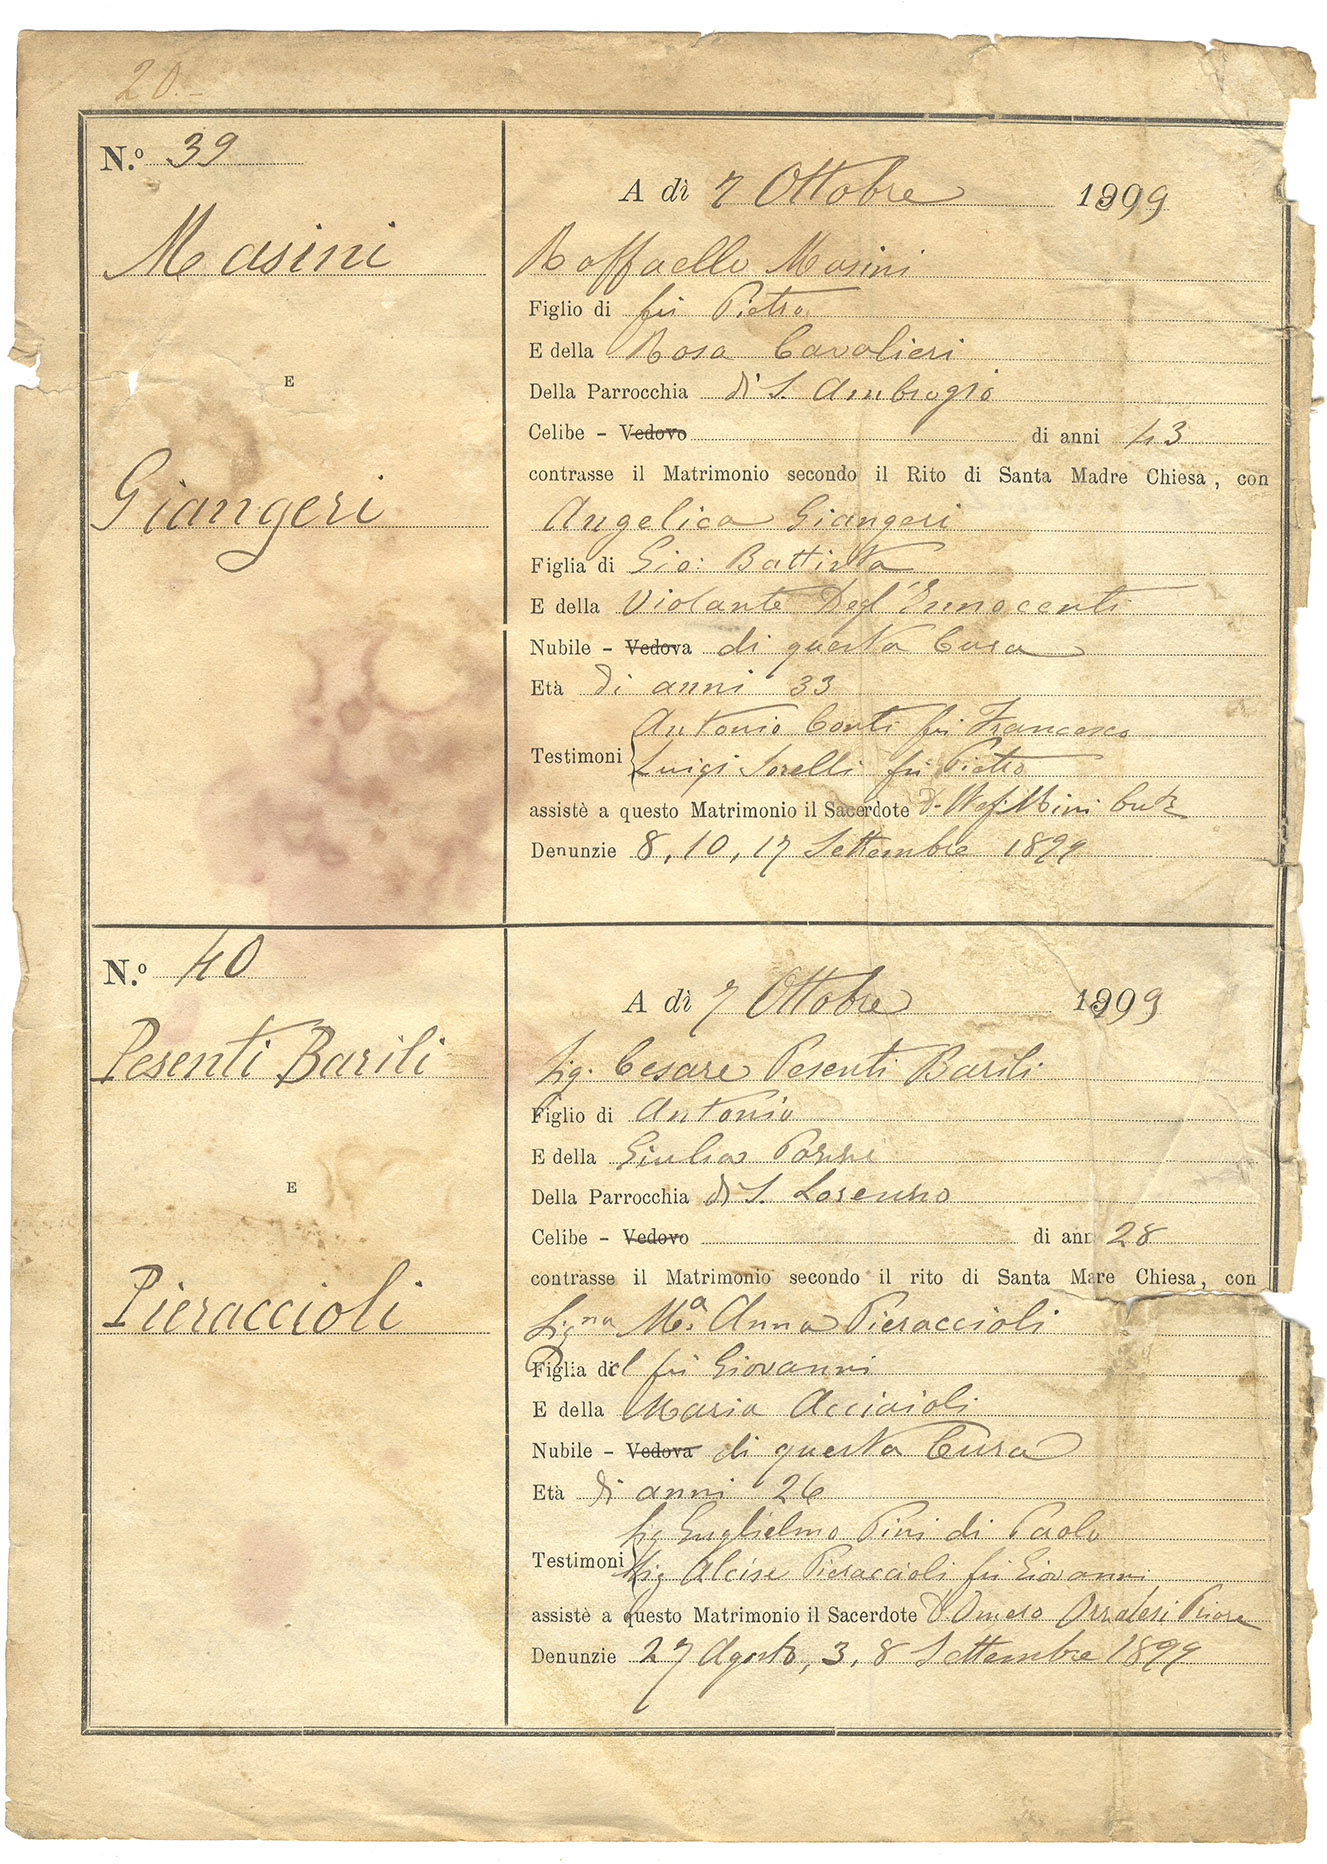 20.-
N.º 39
Masini
E
Giangeri
A dì 7 Ottobre 1899
Raffaello Masini
Figlio di fu Pietro
E della Rosa Cavalieri
Della Parrocchia di S. Ambrogio
Celibe - Vedovo di anni 43
contrasse il Matrimonio secondo il Rito di Santa Madre Chiesa, con
Angelica Giangeri
Figlia di Gio: Battista
E della Violante Degl'Innocenti
Nubile - Vedova di questa Cura
Età di anni 33
Antonio Conti fu Francesco
Testimoni Luigi Sorelli fu Pietro
assistè a questo Matrimonio il Sacerdote D.
Denunzie 8, 10, 17 Settembre 1899
N.º 40
Pesenti Barili
E
Pieraccioli
A dì 7 Ottobre 1899
Sig. Cesare Pesenti Barili
Figlio di Antonio
E della Giulia
Della Parrocchia di S. Lorenzo
Celibe - Vedovo di ann 28
contrasse il Matrimonio secondo il rito di Santa Mare Chiesa, con
Sig.na M.a Anna Pieraccioli
Figlia del fu Giovanni
E della Maria Acciaioli
Nubile - Vedova di questa Cura
Età di anni 26
Sig Guglielmo Pini di Paolo
Testimoni Sig Pieraccioli fu Giovanni
assistè a questo Matrimonio il Sacerdote D. Omero Priore
Denunzie 27 Agosto, 3, 8 Settembre 1899